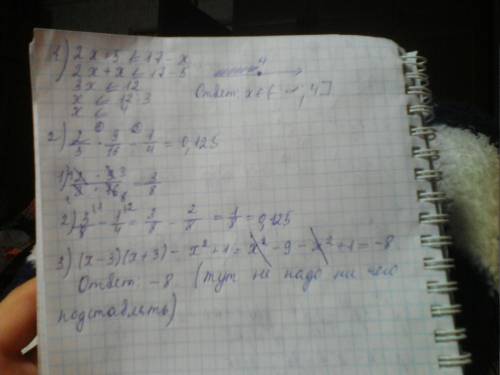 1) 2x+5 ≤ 17-x
2x+x ≤ 17-5
3x ≤ 12
x ≤ 12:3
x ≤ 4
Ответ: x∈(-∞, 4]
2) · 3/16 - 1/4 = 0,125
2) 3/8 - 1/4 = 3/8 - 2/8 = 1/8 = 0,125
3) (x-3)(x+3) - x²+1 = x² - 9 - x² + 1 = -8
Ответ: -8 (тут не надо ни чего
подставлять)